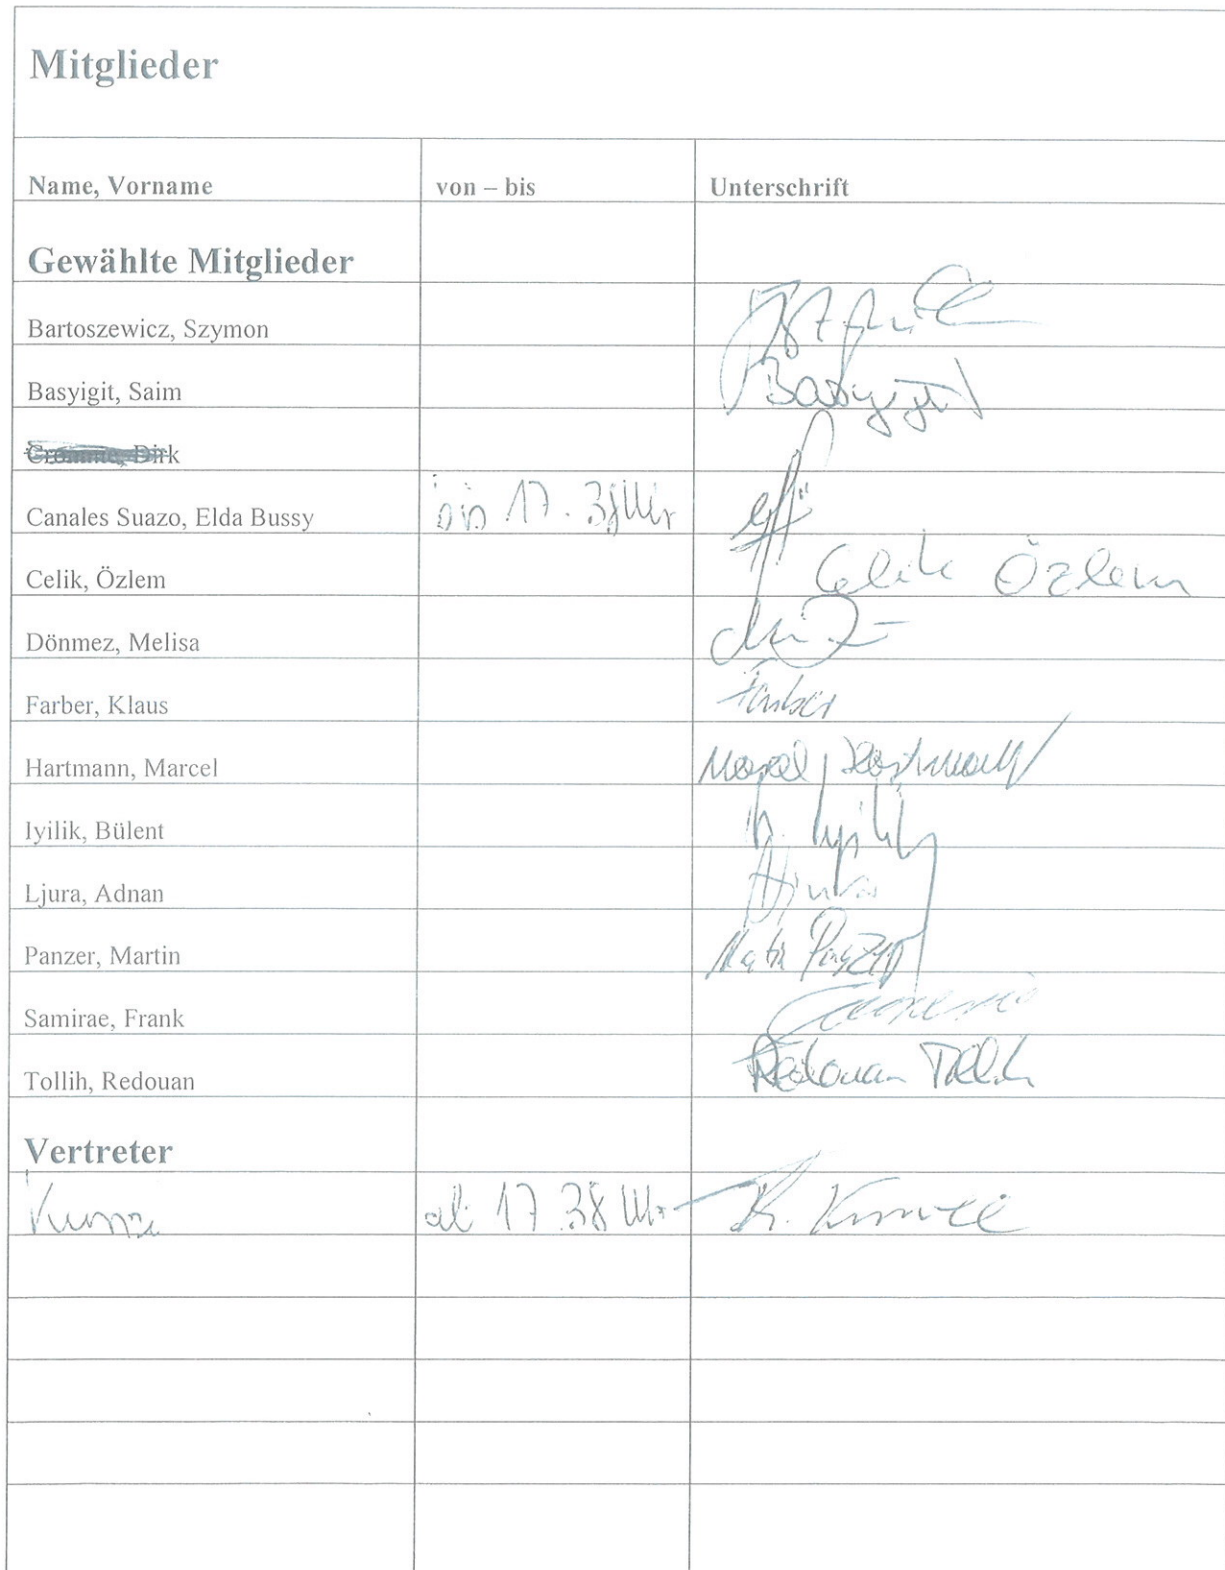 Mitglieder
Name, Vorname von – bis Unterschrift
Gewählte Mitglieder
Bartoszewicz, Szymon
Basyigit, Saim Basyigit
Dirk
Canales Suazo, Elda Bussy bis 17.38 Uhr
Celik, Özlem Celik Özlem
Dönmez, Melisa
Farber, Klaus Farber
Hartmann, Marcel Marcel Hartmann
Iyilik, Bülent B. Iyilik
Ljura, Adnan
Panzer, Martin Martin Panzer
Samirae, Frank
Tollih, Redouan Redouan Tollih
Vertreter
ab 17 38 Uhr